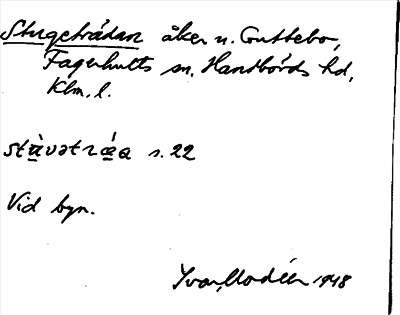 Stugeträdan åker n. Guttebo,
Fagerhults sn, Handbörds hd,
Klm. l.
s. 22
Vid byn.
Ivar Modéer 1948